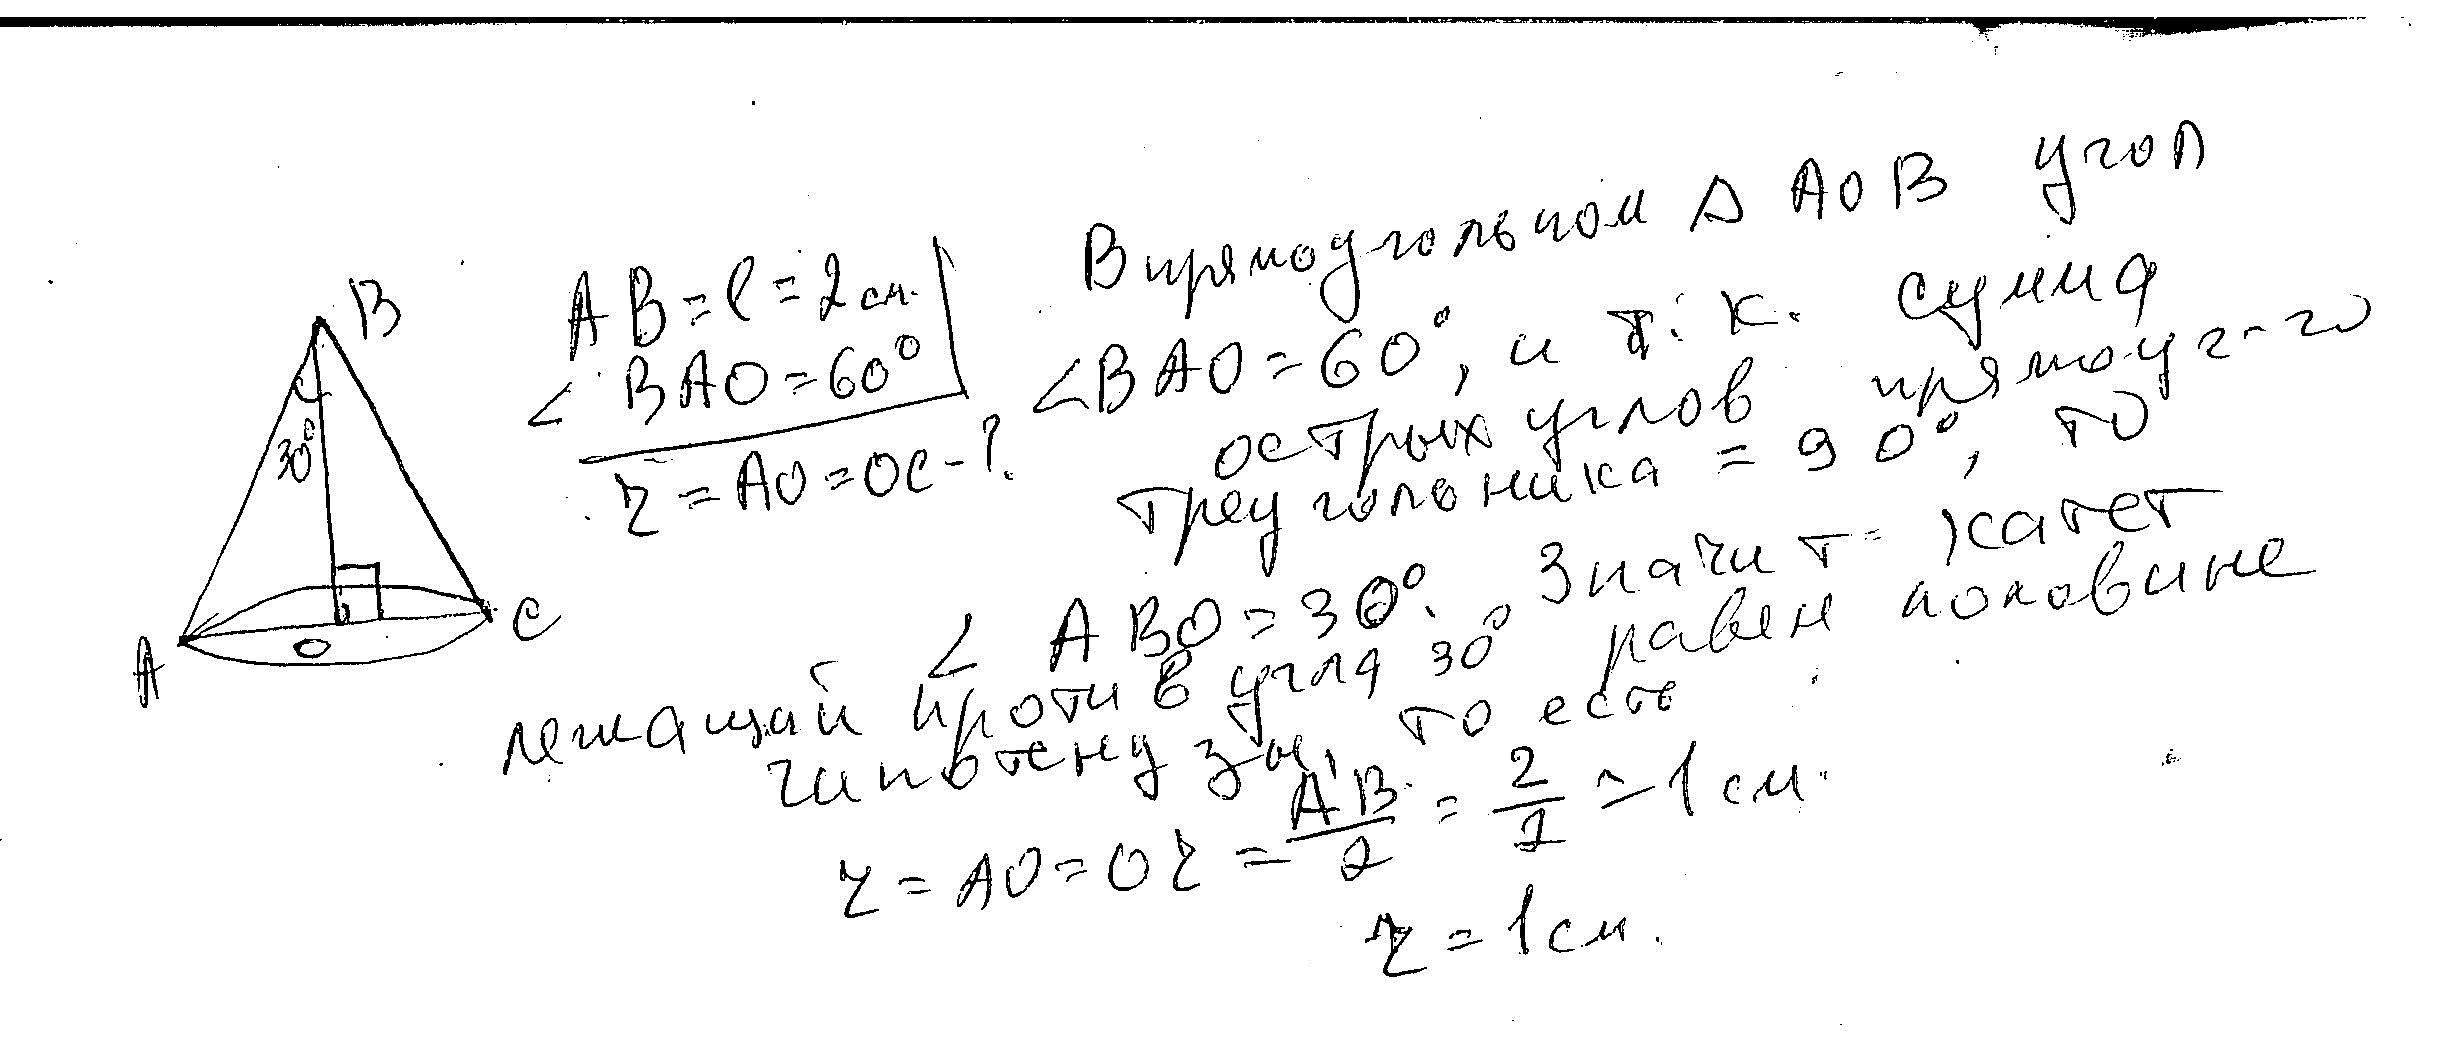 B
30°
A
O
C
AB = l = 2 см.
∠ BAO = 60°
r = AO = OC - ?
В прямоугольном Δ AOB угол
∠BAO = 60°, и т. к. сумма
острых углов прямоуг-го
треугольника = 90°, то
∠ ABO = 30°. Значит катет
лежащий против угла 30° равен половине
гипотенузы, то есть
r = AO = Or = AB/2 = 2/2 = 1 см.
r = 1 см.